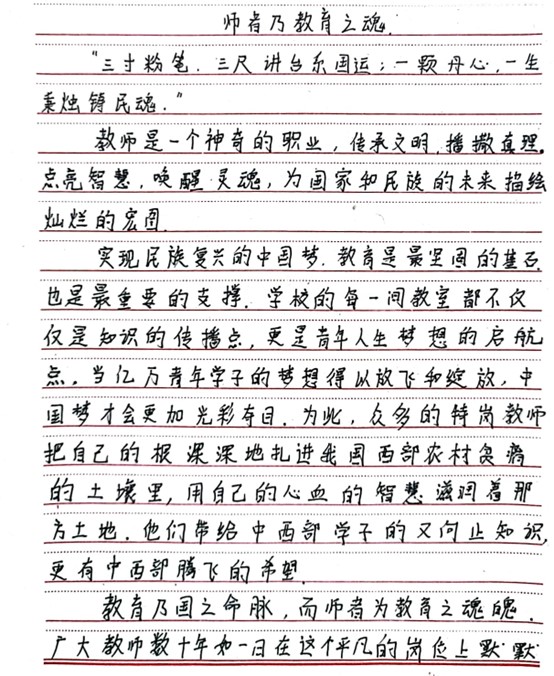 师者乃教育之魂.
“三寸粉笔.三尺讲台系国运;一颗丹心,一生
秉烛铸民魂.”
教师是一个神奇的职业,传承文明,播撒真理.
点亮智慧,唤醒灵魂,为国家和民族的未来描绘
灿烂的宏图.
实现民族复兴的中国梦.教育是最坚固的基石.
也是最重要的支撑.学校的每一间教室都不仅
仅是知识的传播点,更是青年人生梦想的启航
点.当亿万青年学子的梦想得以放飞和绽放,中
国梦才会更加光彩夺目.为此,众多的特岗教师
把自己的根深深地扎进我国西部农村贫瘠
的土壤里,用自己的心血的智慧滋润着那
方土地.他们带给中西部学子的又何止知识,
更有中西部腾飞的希望.
教育乃国之命脉,而师者为教育之魂魄.
广大教师数十年如一日在这个平凡的岗位上默默